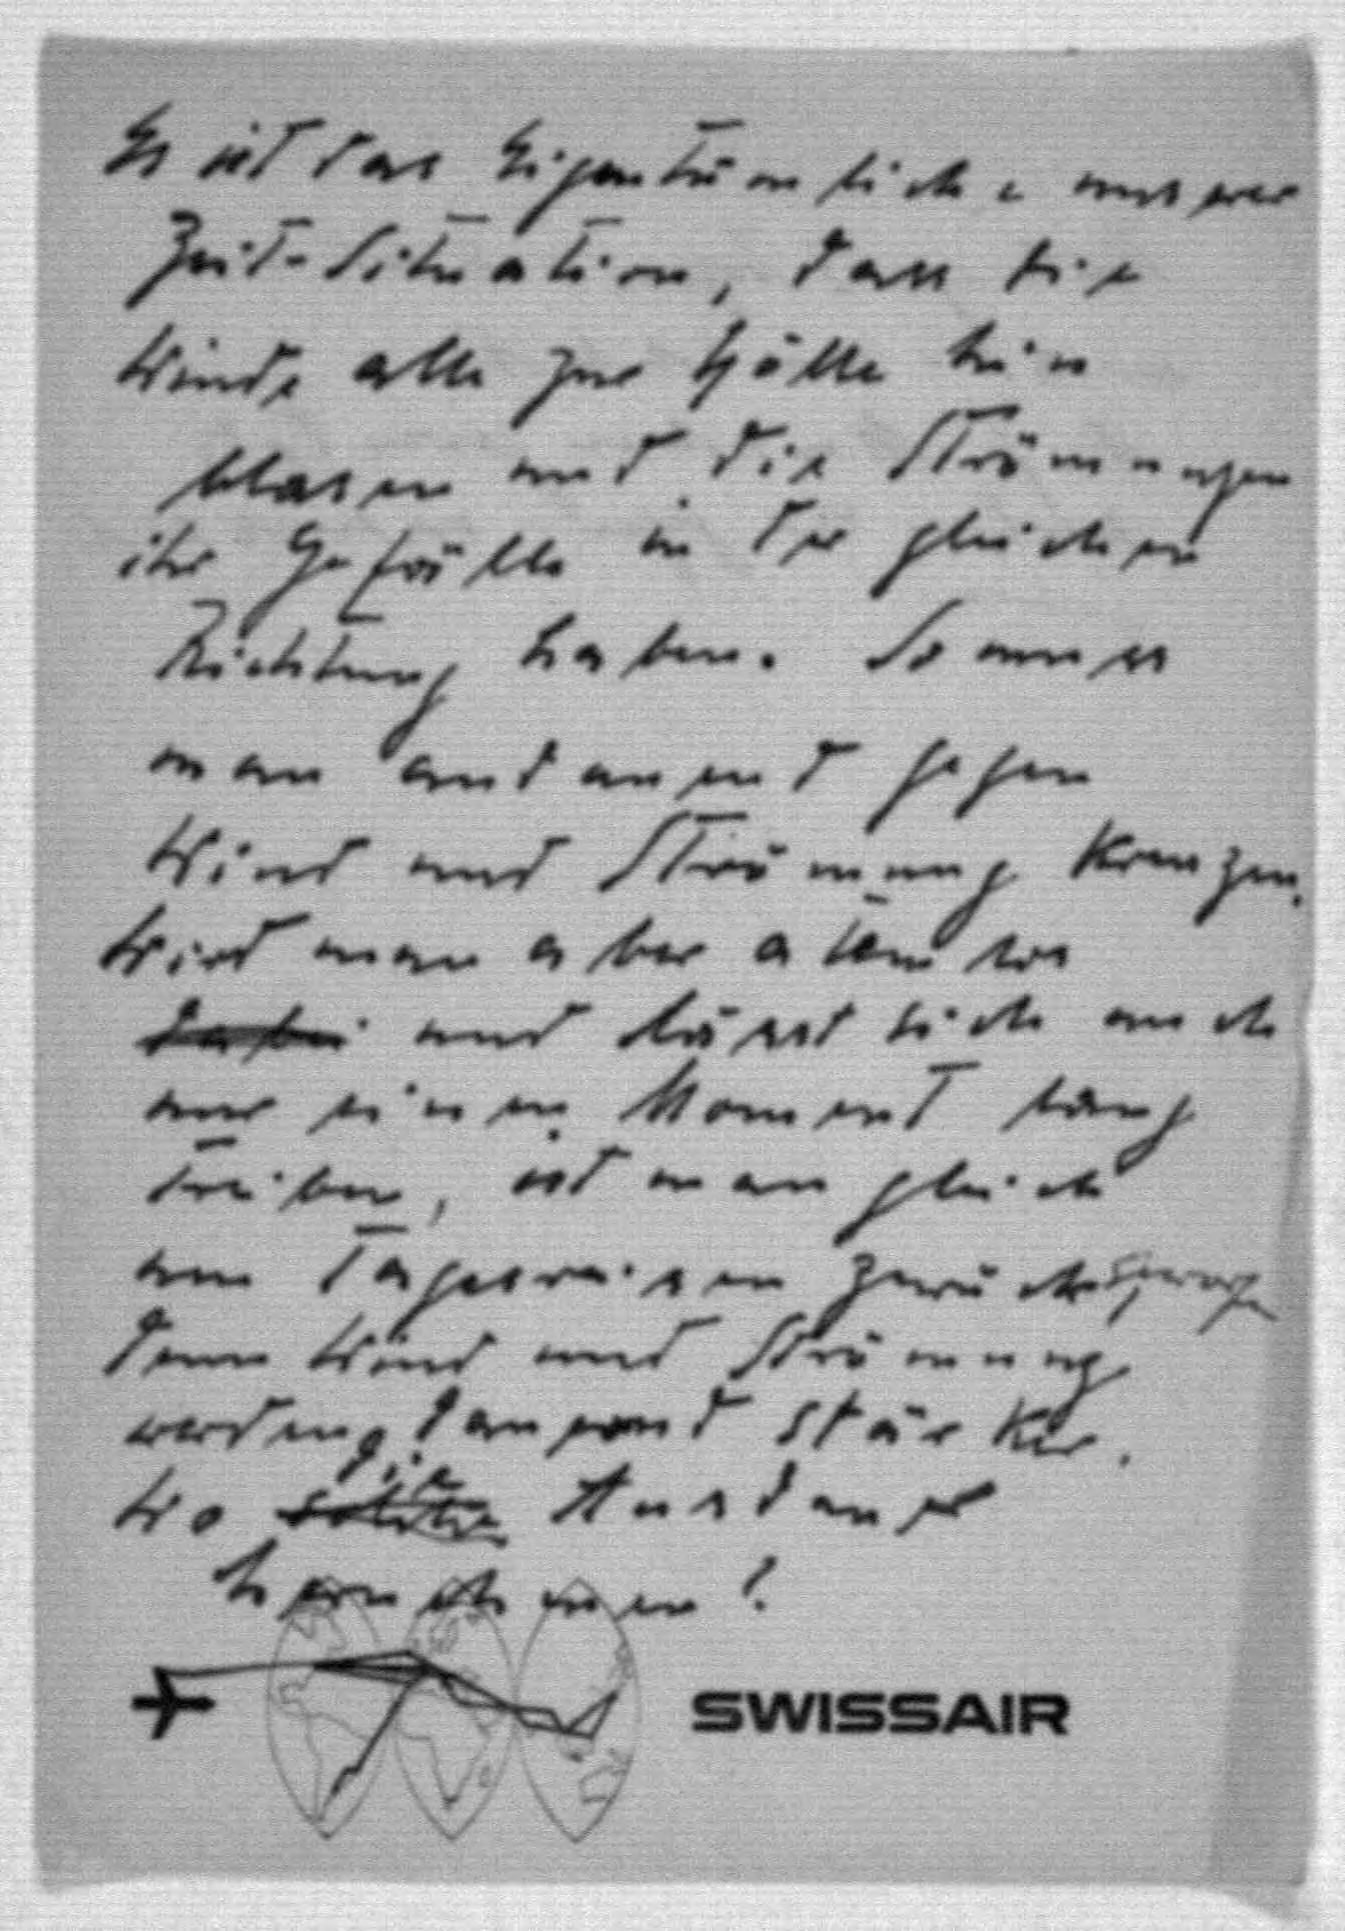 Es ist das Eigentümliche unserer
Zeit-Situation, dass die
Winde alle zur Hölle hin
blasen und die Strömungen
ihr Gefälle in der gleichen
Richtung haben. So muss
man andauernd gegen
Wind und Strömung Kreuzen.
Wird man aber atemlos
dabei und lässt sich auch
nur einen Moment lang
treiben, ist man gleich
um Tagesreisen zurückgeworfen
denn Wind und Strömung
werden dauernd stärker.
die
Wo Ausdauer
hernehmen?
SWISSAIR